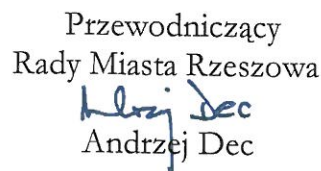 Przewodniczący
Rady Miasta Rzeszowa
Andrzej Dec
Andrzej Dec